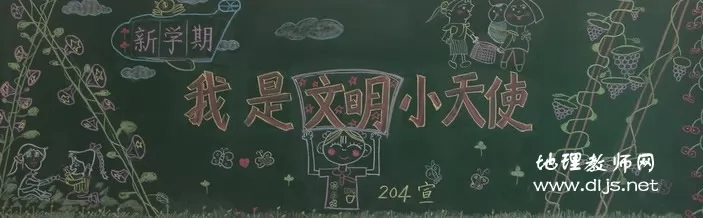 新学期
我是文明小天使
204宣
地理教师网
www.dljs.net